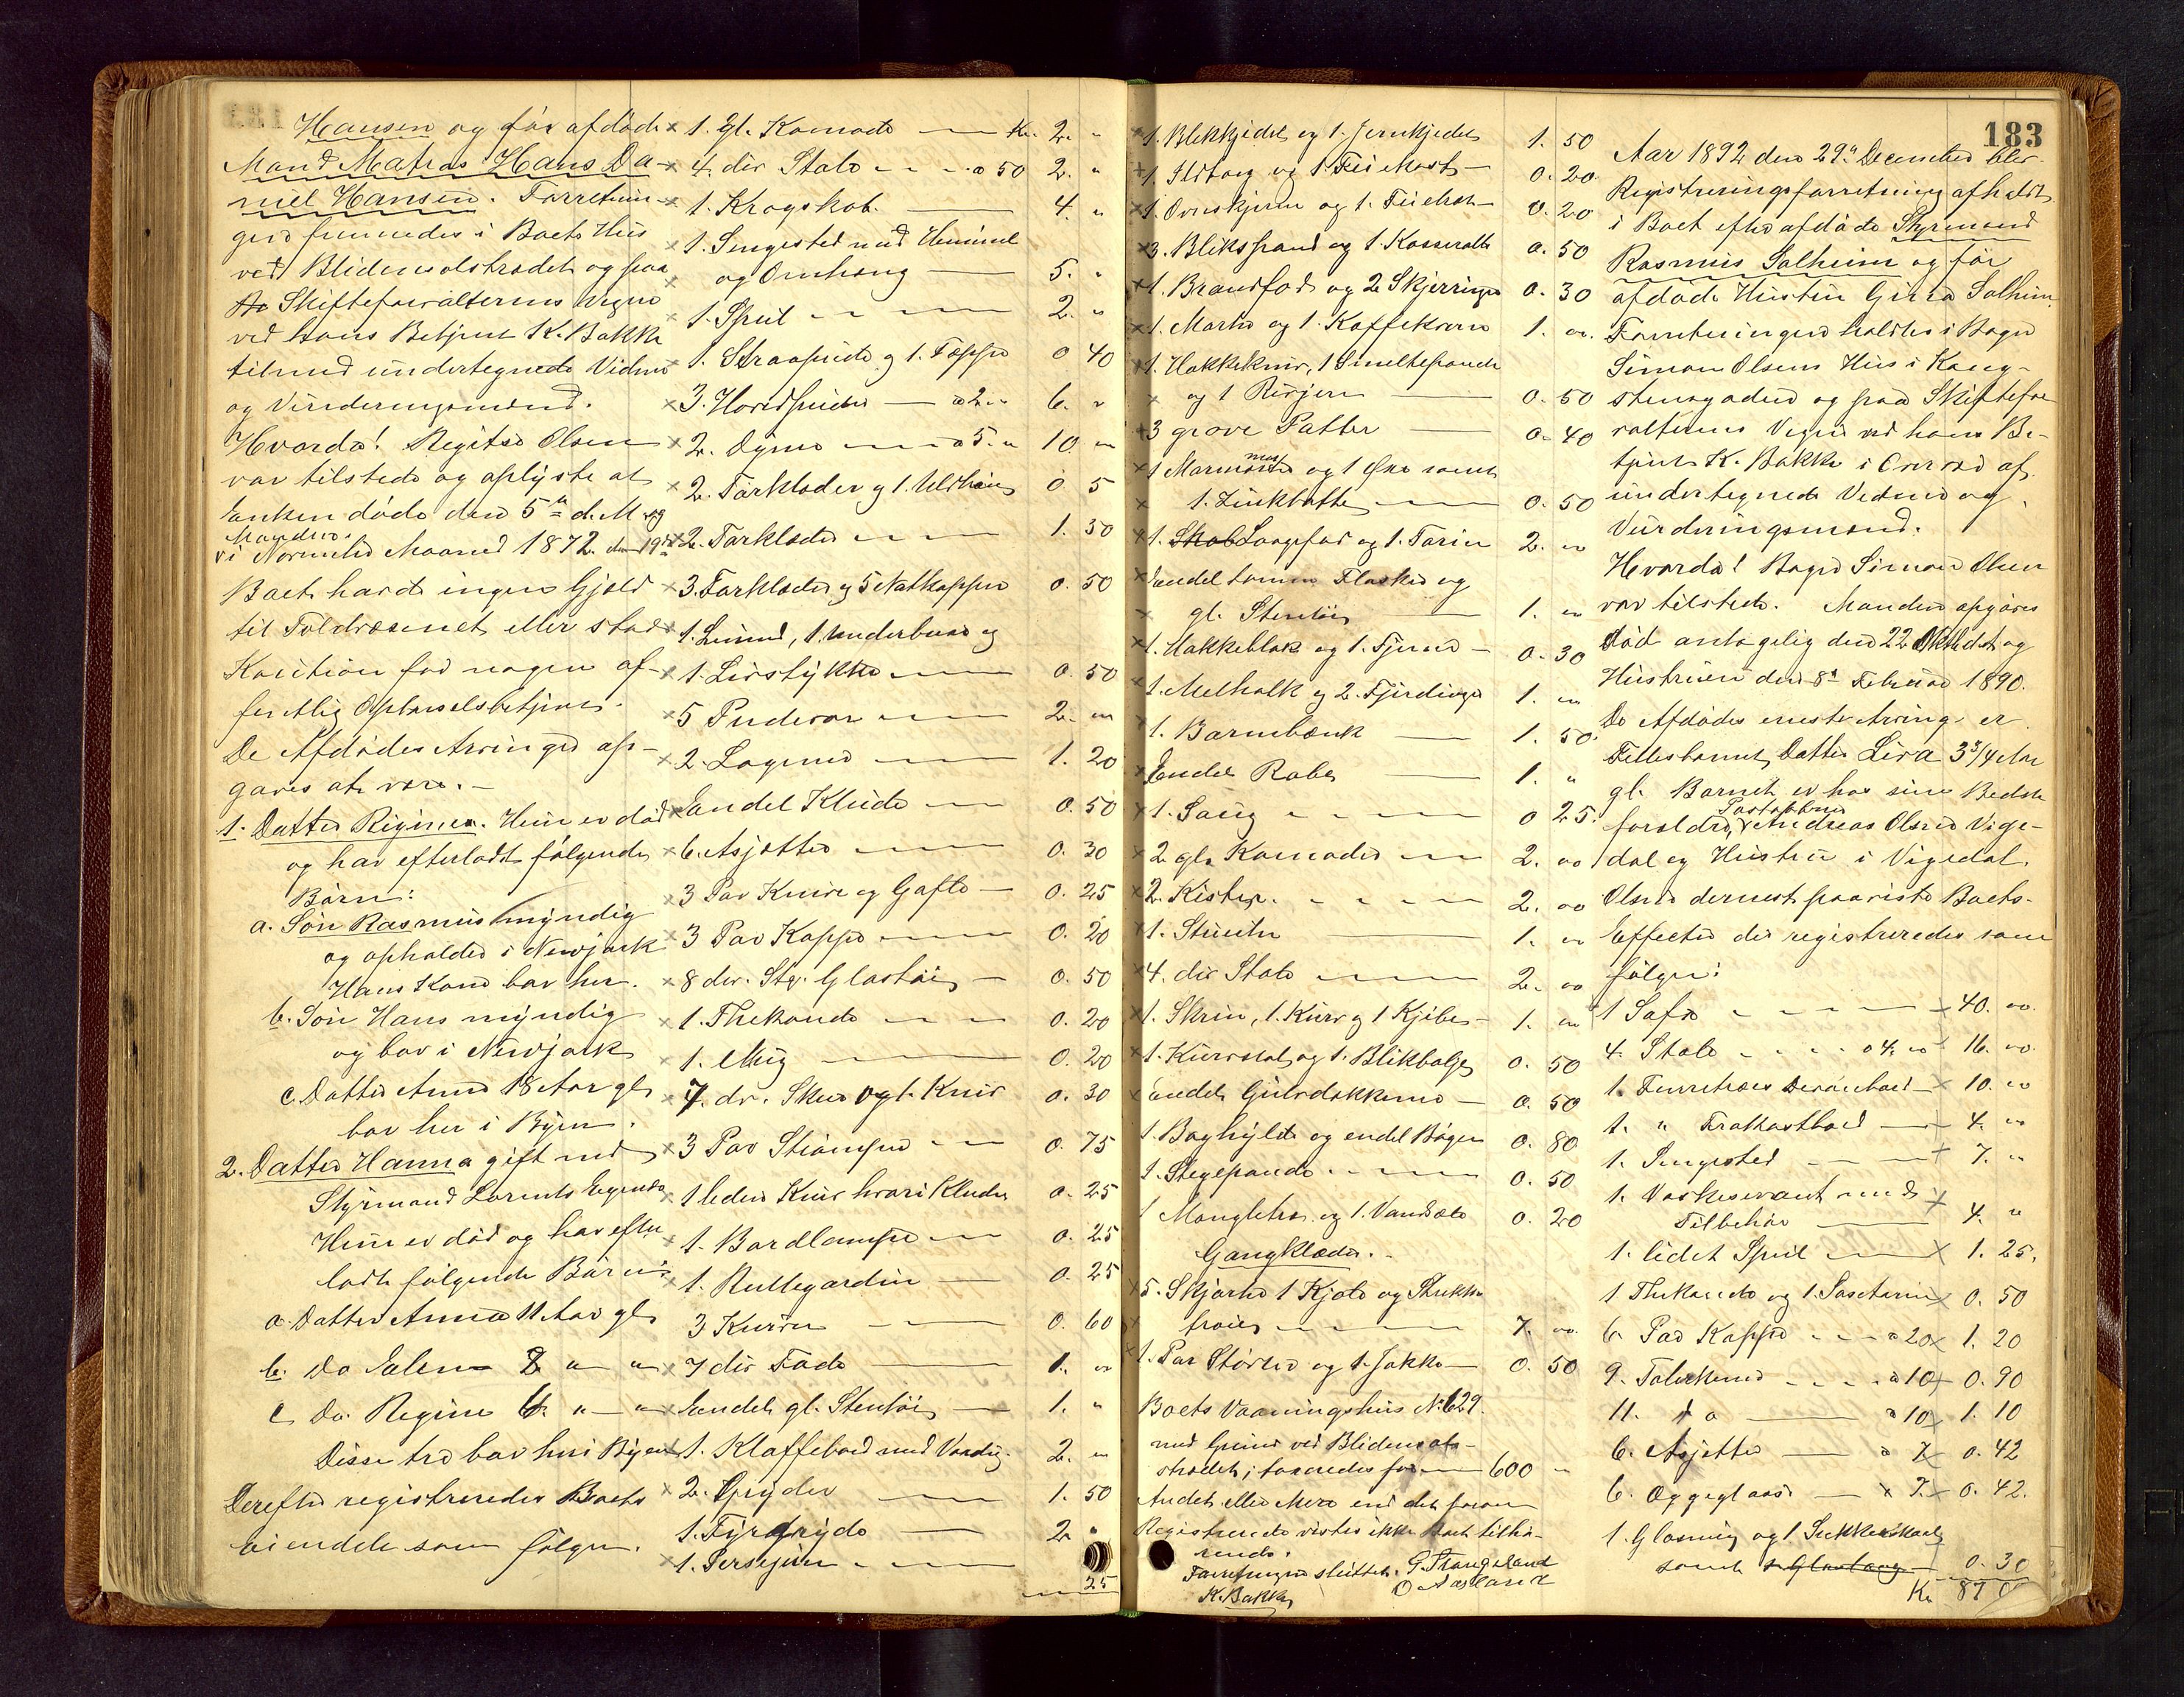 Hansen og før afdøde
Mand Matros Hans Da-
niel Hansen. Forretnin-
gen fremmedes i Boets Hus
ved Blidensolstrædet og paa
Skifteforvalterens Vegne
ved hans Betjent K. Bakke
tilmed undertegnede Vidner
og Vurderingsmænd.
Hvorda! Regitse Olsen
var tilstede og oplyste at
Enken døde den 5te d. M. og
Manden
i November Maaned 1872. den 19de
Boet havde ingen Gjæld
til Toldvæsenet eller stod
Kaution for nogen of-
fentlig Opbørselsbetjent.
De Afdødes Arvinger op-
gaves at være. -
1. Datter Regine. Hun er død
og har efterladt følgende
Børn:
a. Søn Rasmus myndig
og opholder i Newjork
Hans Kone bor her.
b. Søn Hans myndig
og bor i Newjork
c. Datter Anne 18 Aar gl.
bor her i Byen.
2. Datter Hanna gift med
Styrmand Lorents
Hun er død og har efter
ladt følgende Børn:
a. Datter Anna 11 Aar gl.
b. Do Elen 8 " "
c. Do Regine 6 " "
Disse tre bor her i Byen
Derefter registreredes Boets
eiendele som følger.
1. gl. Komode Kr. 2. "
4. div Stole à 50 2. "
1. Krogskab 4. "
1. Sengested med Himmel
og Omhæng 5. "
1. Speil 2. "
1. Straapude og 1. Tæppe 0 40
3. Hovedpuder à 2. " 6. "
2. Dyner à 5. " 10 "
2. Forklæder og 1. 0. 5
2. Forklæder 1. 50
3. Forklæder og 5 Natkapper 0. 50
1. , 1. Underbuxe og
1. Livstykke 0. 50
5 Pudevar 2. "
2. Lagener 1. 20
Endel Klude 0. 50
6. Asjetter 0. 30
3 Par Knive og Gafle 0. 25
3 Par Kopper 0. 20
8 div. Stk. Glastøi 0. 50
1. Thekande 0. 20
1. Mug 0. 20
7. dv. Skeer og 1. Kniv 0. 30
3 Par Strømper 0. 75
1 liden Kurv hvori Kluder 0. 25
1. Bordlampe 0. 25
1. Rullegardin 0. 25
3 Kurve 0. 60
7 div Fade 1. "
Endel gl. Stentøi 1. "
1. Klaffebord med Voxdug 2. "
2. Gryder 1. 50
1. Fyrgryde 2. "
1. 
25
1. Blikkjedel og 1. Jernkjedel 1. 50
1. Ildtang og 1 Feiekost 0. 20
1. Ovnskjerm og 1. Feiebræt 0. 20
3. Blikspand og 1. Kasserolle 0. 50
1. Brændfad og 2 Skjerringer 0. 30
1. Morter og 1. Kaffekværn 1. "
1. Hakkekniv, 1 Smeltepande
og 1 Rivjern 0. 50
3 grove Potter 0. 40
1 og 1 Øxe samt
1. Zinkbøtte 0. 50
1. Skab Laagefad og 1. Terrin 2. "
Endel tomme Flasker og
gl. Stentøi 1. "
1. Hakkeblok og 1. 0. 30
1. Melholk og 2. Fjerdinger 1. "
1. Barnebænk 1. 50
Endel Rabe 1. "
1. Saug 0 25.
2 gl. Komoder 2. "
2. Kister. 2. "
1. Stueuhr 1. "
4. div Stole 2. "
1. Skrin, 1. Kurv og 1 Kjibe 1. "
1. Kurvstol og 1. Blikbalje 0. 50
Endel Gulvdækkener 0. 50
1. Boghylde og endel Bøger 0. 80
1. Stegepande 0. 50
1 Mangletræ og 1. Vandsele 0. 20
Gangklæder.
5. Skjørter 1 Kjole og Strikke
trøie 7. "
1. Par Støvler og 1. Jakke 0. 50
Boets Vaaningshus No 629.
med Grund ved Blidensols-
strædet, taxeredes for 600 "
Andet eller Mere end det foran
Registrerede vistes ikke Boet tilhø-
rende.
Forretningen sluttet. G. Stangeland
K. Bakke O Aasland
183
Aar 1892 den 29de December blev
Registreringsforretning afholdt
i Boet efter afdøde Styrmand
Rasmus Solheim og før
afdøde Hustru Gurra Solheim.
Forretningen holdtes i Bager
Simon Olsens Hus i Kong-
stensgaden og paa Skiftefor
valterens Vegne ved hans Be-
tjent K. Bakke i Overvær af
undertegnede Vidner og
Vurderingsmænd.
Hvorda! Bager Simon Olsen
var tilstede. Manden opgives
død antagelig den 22 Oktober og
Hustruen den 8de Februar 1890.
De Afdødes eneste Arving er
Fællesbarnet, Datter Liva 3 3/4 Aar
gl. Barnet er hos sine Bedste
forældre, Andreas Olsen Vige-
dal og Hustru i Vigedal.
Olsen dernest paaviste Boets
Effecter der registreredes som
følger:
1 Sofa 40. "
4. Stole à 4. " 16. "
1. Furretræes 10. "
1. " Frokostbord 4. "
1. Sengested 7. "
1. Vaskeservant med
Tilbehør 4. "
1. lidet Speil 1. 25.
1 Thekande og 1. 0. 50
6. Par Kopper à 20 1. 20
9. Talerkener à 10 0. 90
11. do à 10 1. 10
6. Asjetter à 7 0. 42
6. Æggeglass à 7. 0. 42.
1. Glasmug og 1 Sukkerskaal
samt 0. 30
Kr 87 0